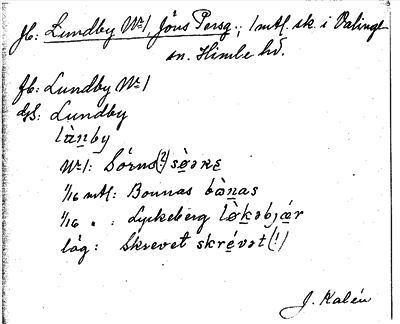 jb: Lundby Nr 1, Jöns Persg.; 1 mtl. sk. i Valinge
sn. Himle hd.
jb: Lundby Nr 1
dss: Lundby
lànby
Nr 1: Sörns(?) sø̀ɔnɛ
1/16 mtl: Bonnas bònas
1/16 " : Lyckeberg lø̀kəbjǽr
låg: Skrevet skrévət (!)
J. Kalén